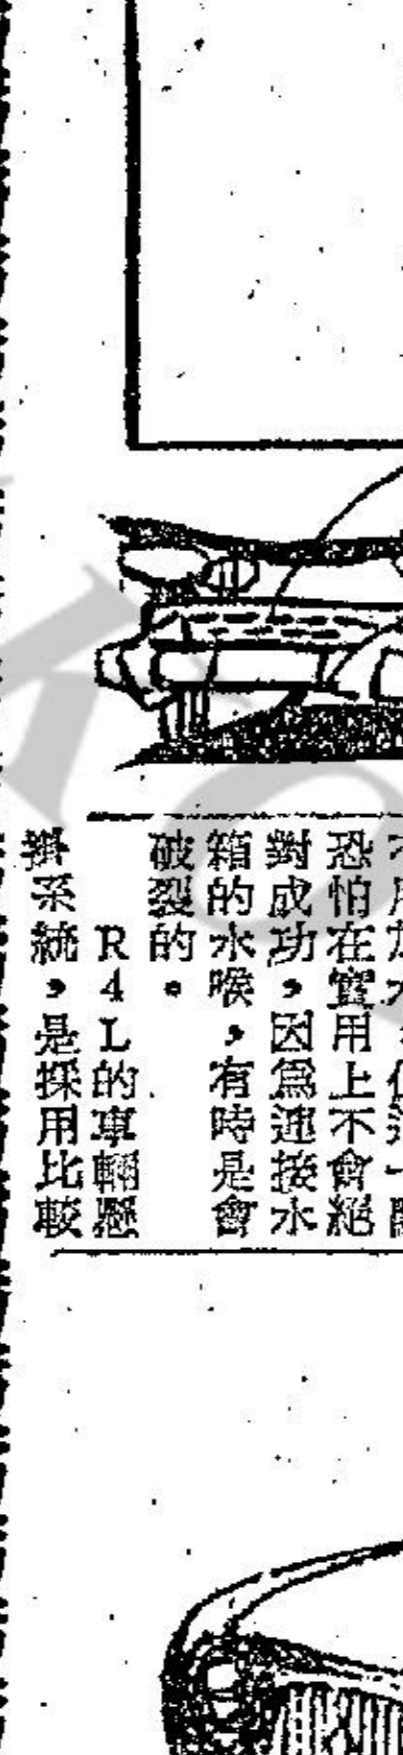 恐怕在實用上不會絕
對成功，因爲連接水
箱的水喉，有時是會
破裂的。
R4L的車輛懸
掛系統，是採用比較